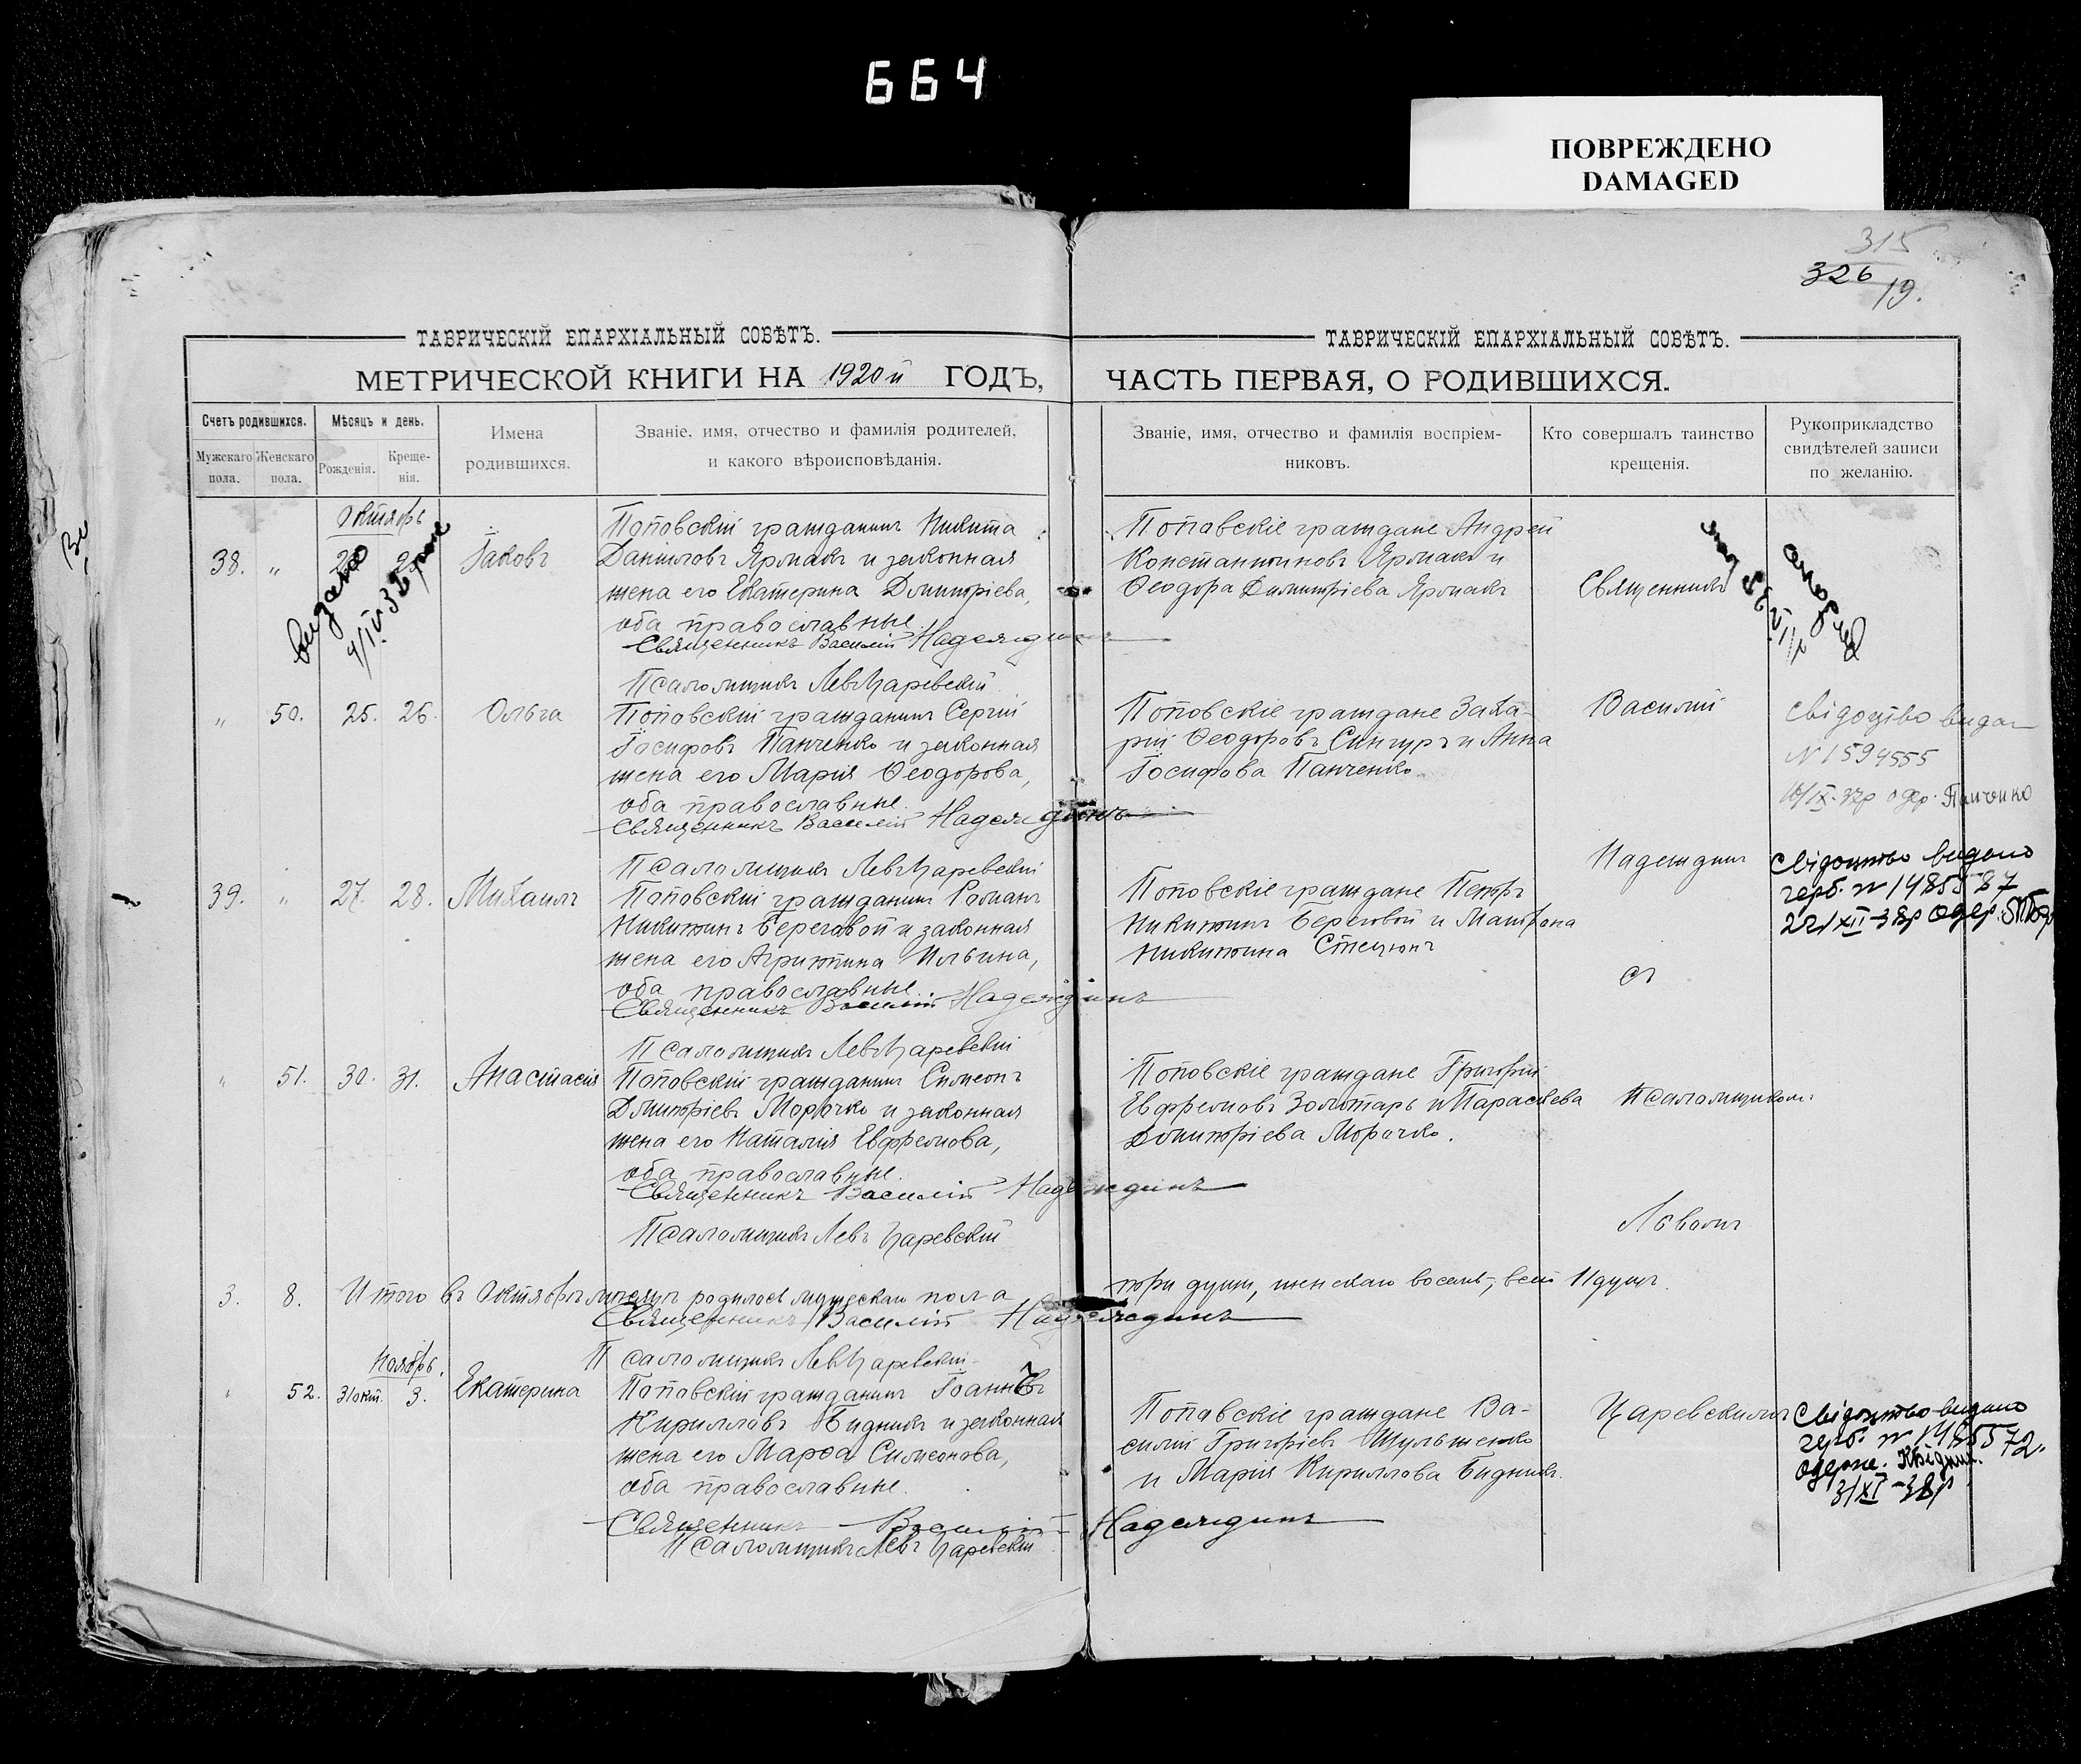 664
ПОВРЕЖДЕНО
DAMAGED
315
326
19.
ТАВРИЧЕСКІЙ ЕПАРХІАЛЬНЫЙ СОВѢТЪ.
МЕТРИЧЕСКОЙ КНИГИ НА 1920й ГОДЪ,
Счетъ родившихся.
Мужскаго пола.
Женскаго пола.
Мѣсяцъ и день.
Рожденія.
Креще-
нія.
Имена
родившихся.
Званіе, имя, отчество и фамилія родителей,
и какого вѣроисповѣданія.
ТАВРИЧЕСКІЙ ЕПАРХІАЛЬНЫЙ СОВѢТЪ.
ЧАСТЬ ПЕРВАЯ, О РОДИВШИХСЯ.
Званіе, имя, отчество и фамилія воспріем-
никовъ.
Кто совершалъ таинство
крещенія.
Рукоприкладство
свидѣтелей записи
по желанію.
Октябрь
38. "
Іаковъ
видано
Поповскій гражданинъ Никита
Даниловъ Ярмакъ и законная
жена его Екатерина Димитріева,
оба православные.
Священникъ Василій Надеждинъ
Псаломщикъ Левъ Царевскій
Поповскіе граждане Андрей
Константиновъ Ярмакъ и
Ѳеодора Димитріева Ярмакъ
Священникъ
видано
" 50. 25. 26. Ольга
Поповскій гражданинъ Сергій
Іосифовъ Панченко и законная
жена его Марія Ѳеодорова,
оба православные.
Священникъ Василій Надеждинъ
Псаломщикъ Левъ Царевскій
Поповскіе граждане Заха-
рій Ѳеодоровъ Сингуръ и Анна
Іосифова Панченко.
Василій
свідоцтво видан
N 1594555
Панченко
39. " 27. 28. Михаилъ
Поповскій гражданинъ Романъ
Никитинъ Береговой и законная
жена его Агрипина Ильина,
оба православные.
Священникъ Василій Надеждинъ
Псаломщикъ Левъ Царевскій
Поповскіе граждане Петръ
Никитинъ Береговой и Матрона
Никитина Стецюкъ
Надеждинъ
съ
Свідоцтво видано
герб. № 1485587
22/XII-38р одер.
" 51. 30. 31. Анастасія
Поповскій гражданинъ Симеонъ
Димитріевъ Морочко и законная
жена его Наталія Евфремова,
оба православные.
Священникъ Василій Надеждинъ
Псаломщикъ Левъ Царевскій
Поповскіе граждане Григорій
Евфремовъ Золотарь и Параскева
Димитріева Морочко.
Псаломщикомъ
Львомъ
3. 8. Итого въ Октябрѣ мѣсяцѣ родилось мужескаго пола
три души, женскаго восемь, всего 11 душъ.
Священникъ Василій Надеждинъ
Псаломщикъ Левъ Царевскій
Ноябрь.
" 52. 31 окт. 3. Екатерина
Поповскій гражданинъ Іоаннъ
Кирилловъ Бидникъ и законная
жена его Марѳа Симеонова,
оба православные.
Священникъ Василій Надеждинъ
Псаломщикъ Левъ Царевскій
Поповскіе граждане Ва-
силій Григоріевъ Шульженко
и Марія Кириллова Бидникъ.
Царевскимъ
Свідоцтво видано
герб. № 1485572.
одерж.
3/XI-38р